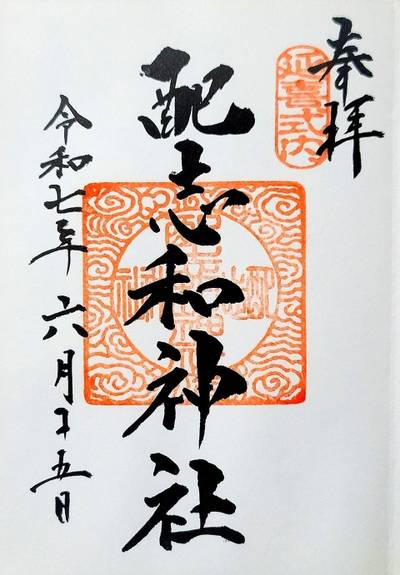 奉拝
延喜式内
配志和神社
令和七年六月十五日